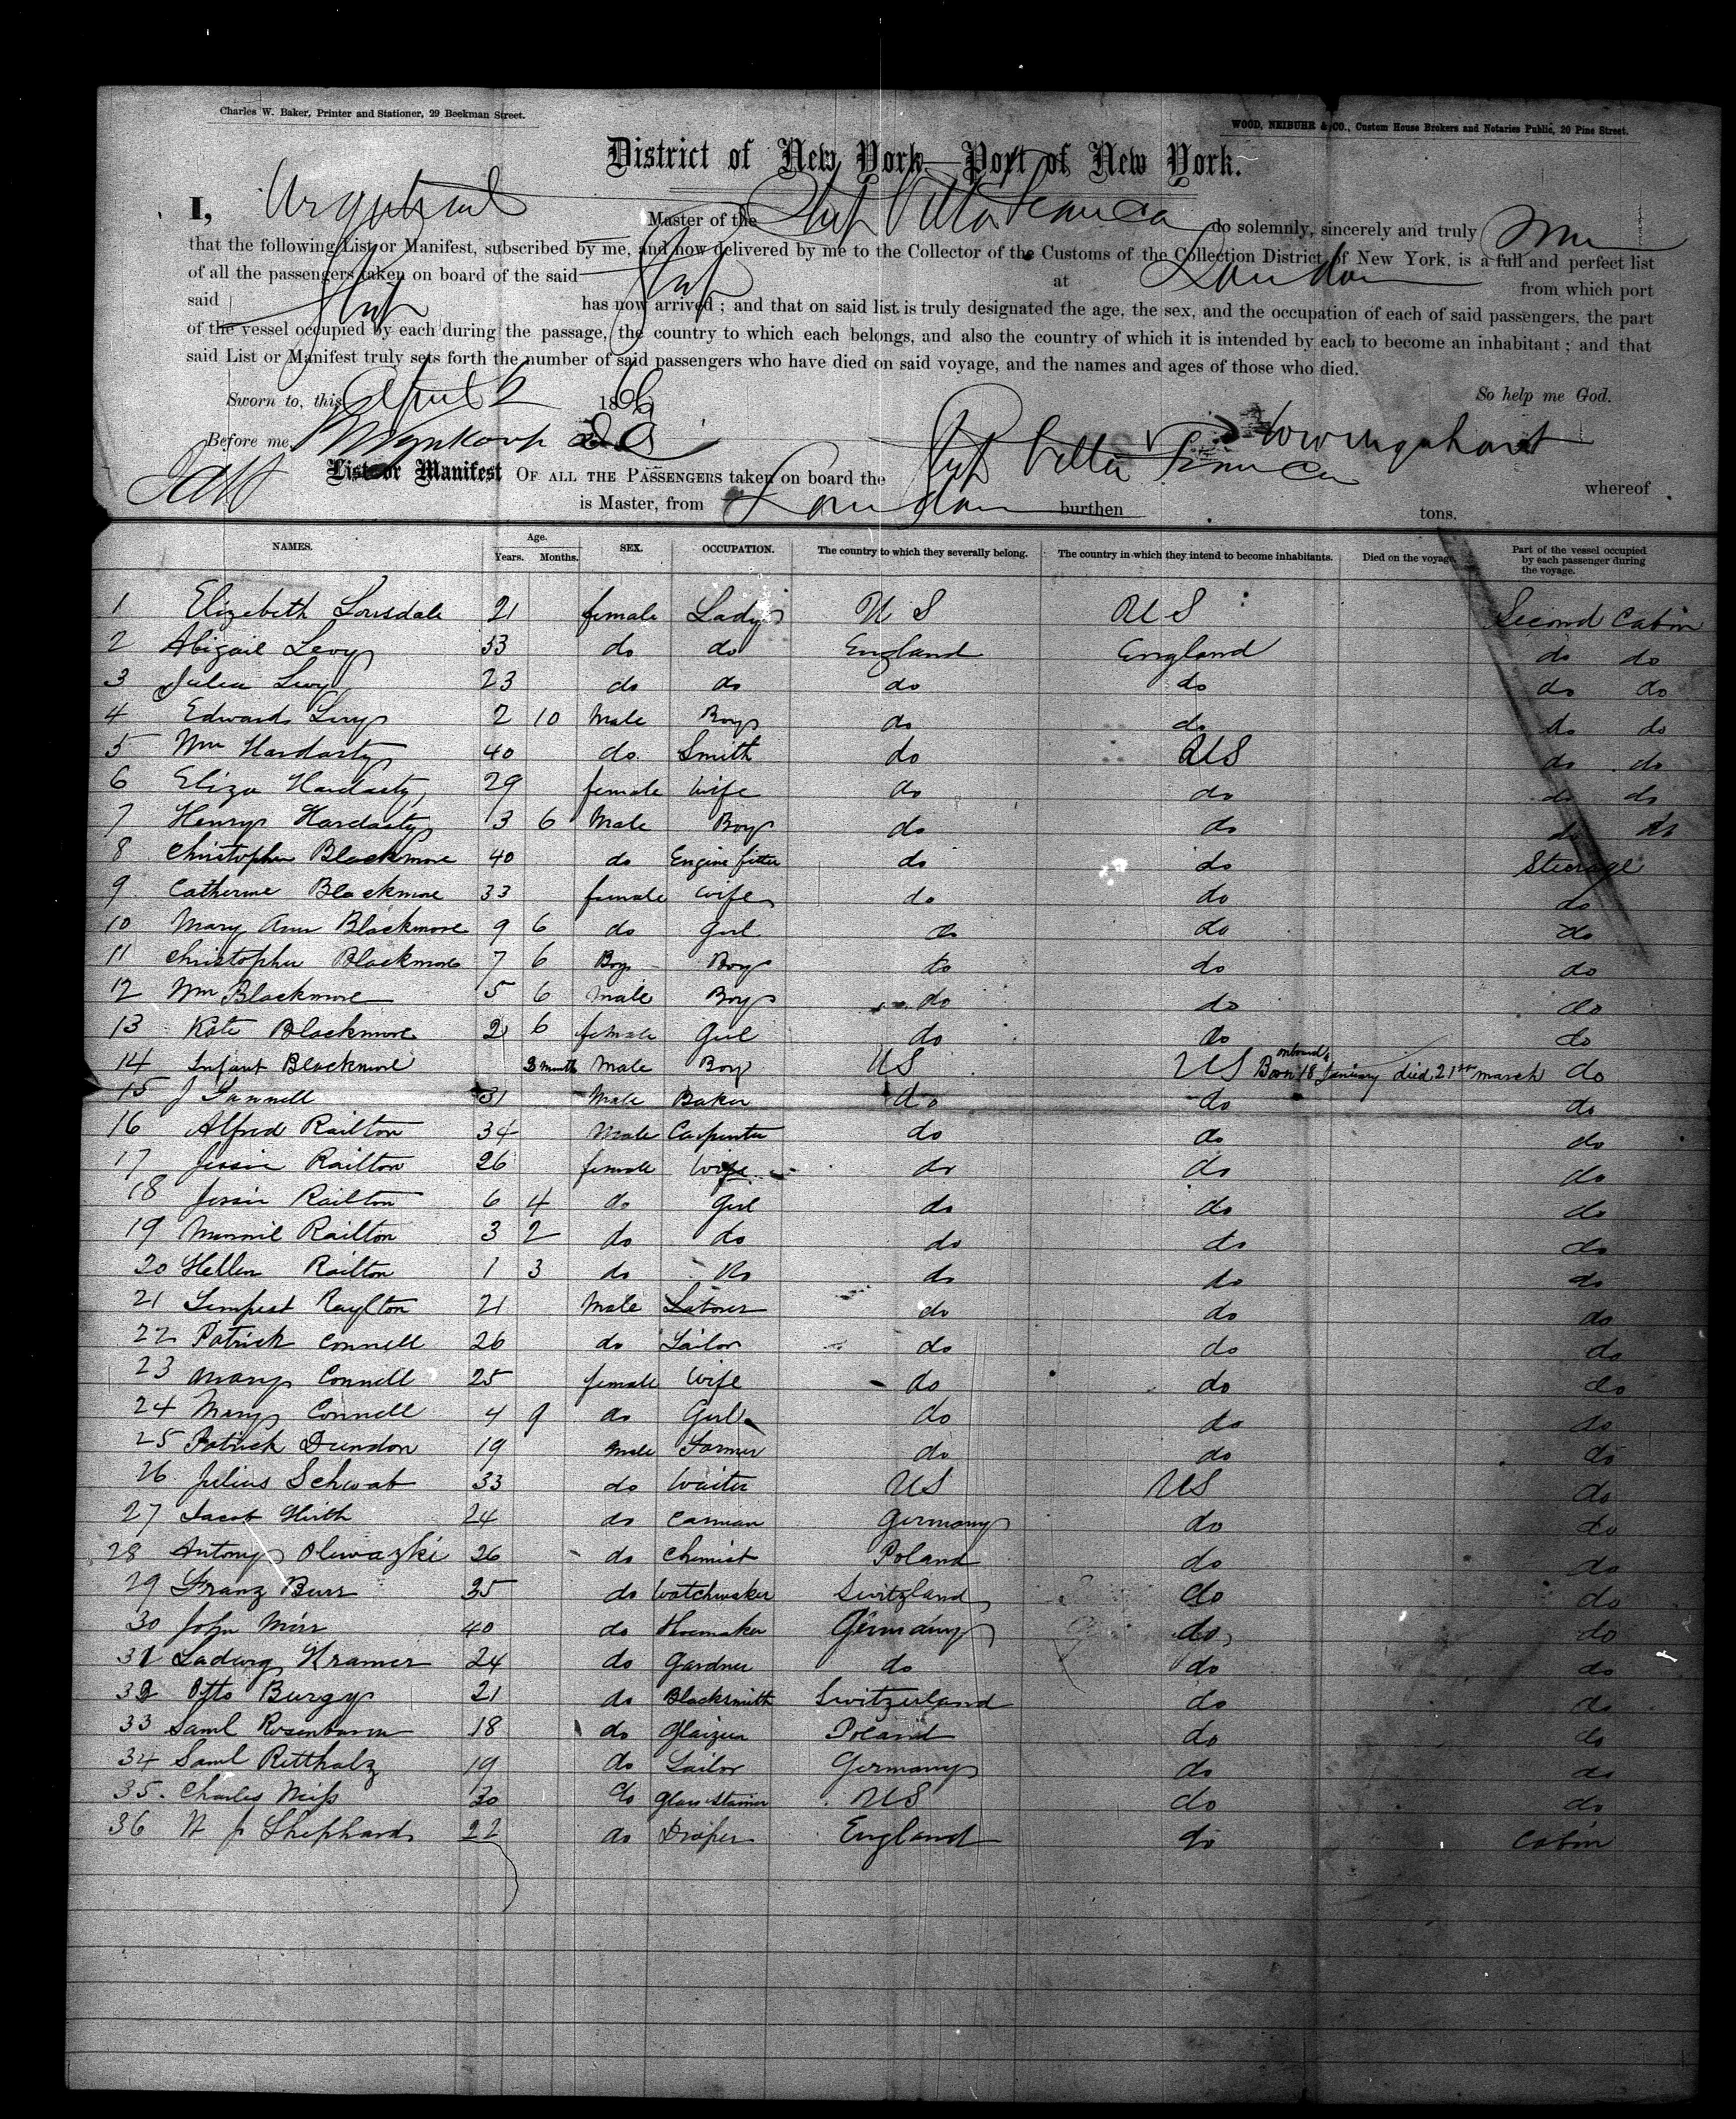 Charles W. Baker, Printer and Stationer, 29 Beekman Street.
WOOD, NEIBUHR & CO., Custom House Brokers and Notaries Public, 20 Pine Street.
District of New York—Port of New York.
I, Urquhart Master of the Ship Villa Franca do solemnly, sincerely and truly
that the following List or Manifest, subscribed by me, and now delivered by me to the Collector of the Customs of the Collection District of New York, is a full and perfect list
of all the passengers taken on board of the said Ship at London from which port
said Ship has now arrived ; and that on said list is truly designated the age, the sex, and the occupation of each of said passengers, the part
of the vessel occupied by each during the passage, the country to which each belongs, and also the country of which it is intended by each to become an inhabitant ; and that
said List or Manifest truly sets forth the number of said passengers who have died on said voyage, and the names and ages of those who died.
Sworn to, this April 2 1866 So help me God.
Before me,
List or Manifest OF ALL THE PASSENGERS taken on board the Ship Villa Franca whereof
is Master, from London burthen tons.
NAMES. Age. Years. Months. SEX. OCCUPATION. The country to which they severally belong. The country in which they intend to become inhabitants. Died on the voyage. Part of the vessel occupied by each passenger during the voyage.
1 Elizebeth Lonsdale 21 female Lady U S U S Second Cabin
2 Abigail Levy 33 do do England England do do
3 Julia Levy 23 do do do do do do
4 Edward Levy 2 10 Male Boy do do do do
5 Wm Hardasty 40 do. Smith do US do do
6 Eliza Hardasty 29 female Wife do do do do
7 Henry Hardasty 3 6 Male Boy do do do do
8 Christopher Blackmore 40 do Engine fitter do do Steerage
9 Catherine Blackmore 33 female wife do do do
10 Mary Ann Blackmore 9 6 do Girl do do do
11 Christopher Blackmore 7 6 Boy Boy do do do
12 Wm Blackmore 5 6 Male Boy do do do
13 Kate Blackmore 2 6 female Girl do do do
14 Infant Blackmore 3 month Male Boy US US Born onboard 18 January died 21st march do
15 J 31 Male Baker do do do
16 Alfred Railton 34 Male Carpenter do do do
17 Jessie Railton 26 female Wife do do do
18 Jessie Railton 6 4 do Girl do do do
19 Minnie Railton 3 2 do do do do do
20 Hellen Railton 1 3 do do do do do
21 Tempest Raylton 21 Male Laborer do do do
22 Patrick Connell 26 do Tailor do do do
23 Mary Connell 25 female Wife do do do
24 Mary Connell 4 9 do Girl do do do
25 Patrick Dundon 19 Male Farmer do do do
26 Julius Schwab 33 do Waiter US US do
27 Jacob Hirth 24 do Carman Germany do do
28 Antony Oliwazki 26 do Chemist Poland do do
29 Franz Burr 35 do Watchmaker Switzland do do
30 John 40 do Shoemaker Germany do do
31 Ladwig Kramer 24 do Gardner do do do
32 Otto Burgy 21 do Blacksmith Switzerland do do
33 Saml Rosenbaum 18 do Glaizier Poland do do
34 Saml Ritthalz 19 do Tailor Germany do do
35. Charles 30 do Glass Stainer US do do
36 Shephard 22 do Draper England do Cabin